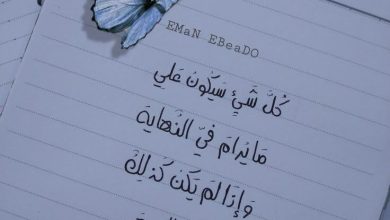 EMaN EBeaDO
كُلَّ شَيْءٍ سَيَكُونُ عَلي
مَا يُرَامَ فيِّ النَهايةِ
وَإِذا لَم يَكن كَذلِكْ